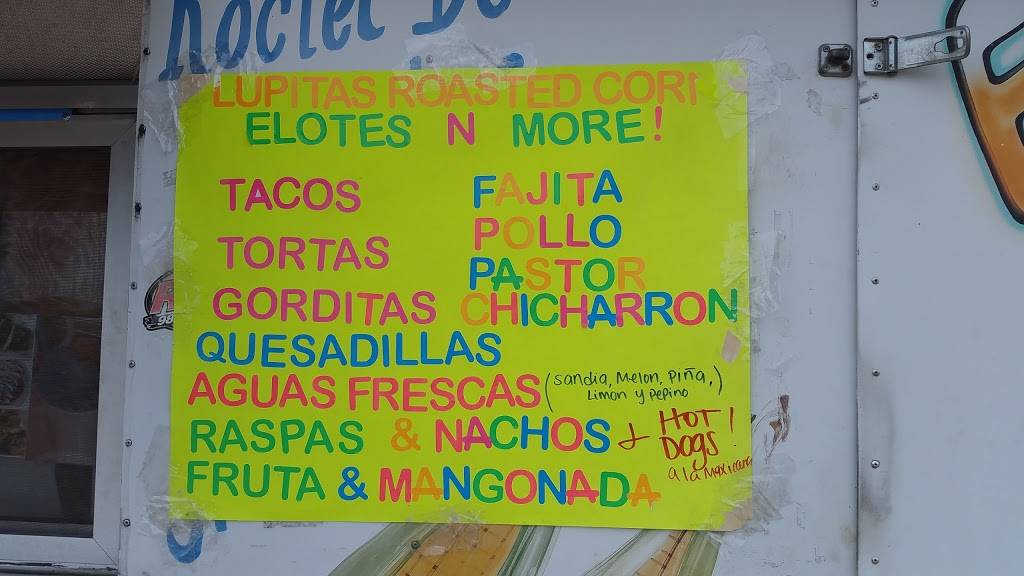 LUPITAS ROASTED CORN
ELOTES N MORE!
TACOS FAJITA
TORTAS POLLO
PASTOR
GORDITAS CHICHARRON
QUESADILLAS
AGUAS FRESCAS (sandia, Melon, Piña, Limon y pepino)
RASPAS & NACHOS & HOT DOGS! a la Mexicana
FRUTA & MANGONADA